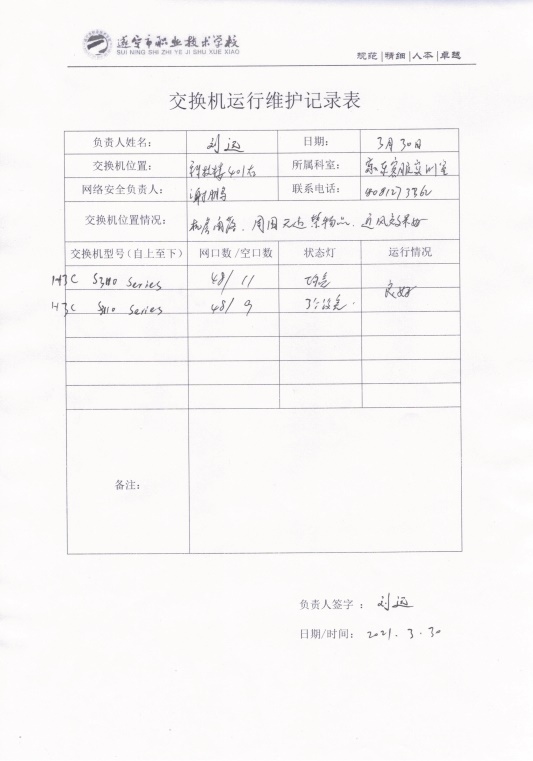 遂宁市职业技术学校
SUI NING SHI ZHI YE JI SHU XUE XIAO
规范|精细|人本|卓越
交换机运行维护记录表
负责人姓名： 刘远 日期： 3月30日
交换机位置： 科教楼401右 所属科室：
网络安全负责人： 谢鹏 联系电话：
交换机位置情况： 机房内部、周围无违禁物品、通风效果好
交换机型号（自上至下） 网口数/空口数 状态灯 运行情况
H3C Series 48/11 良好
H3C Series 48/9
备注：
负责人签字： 刘远
日期/时间： 2021.3.30